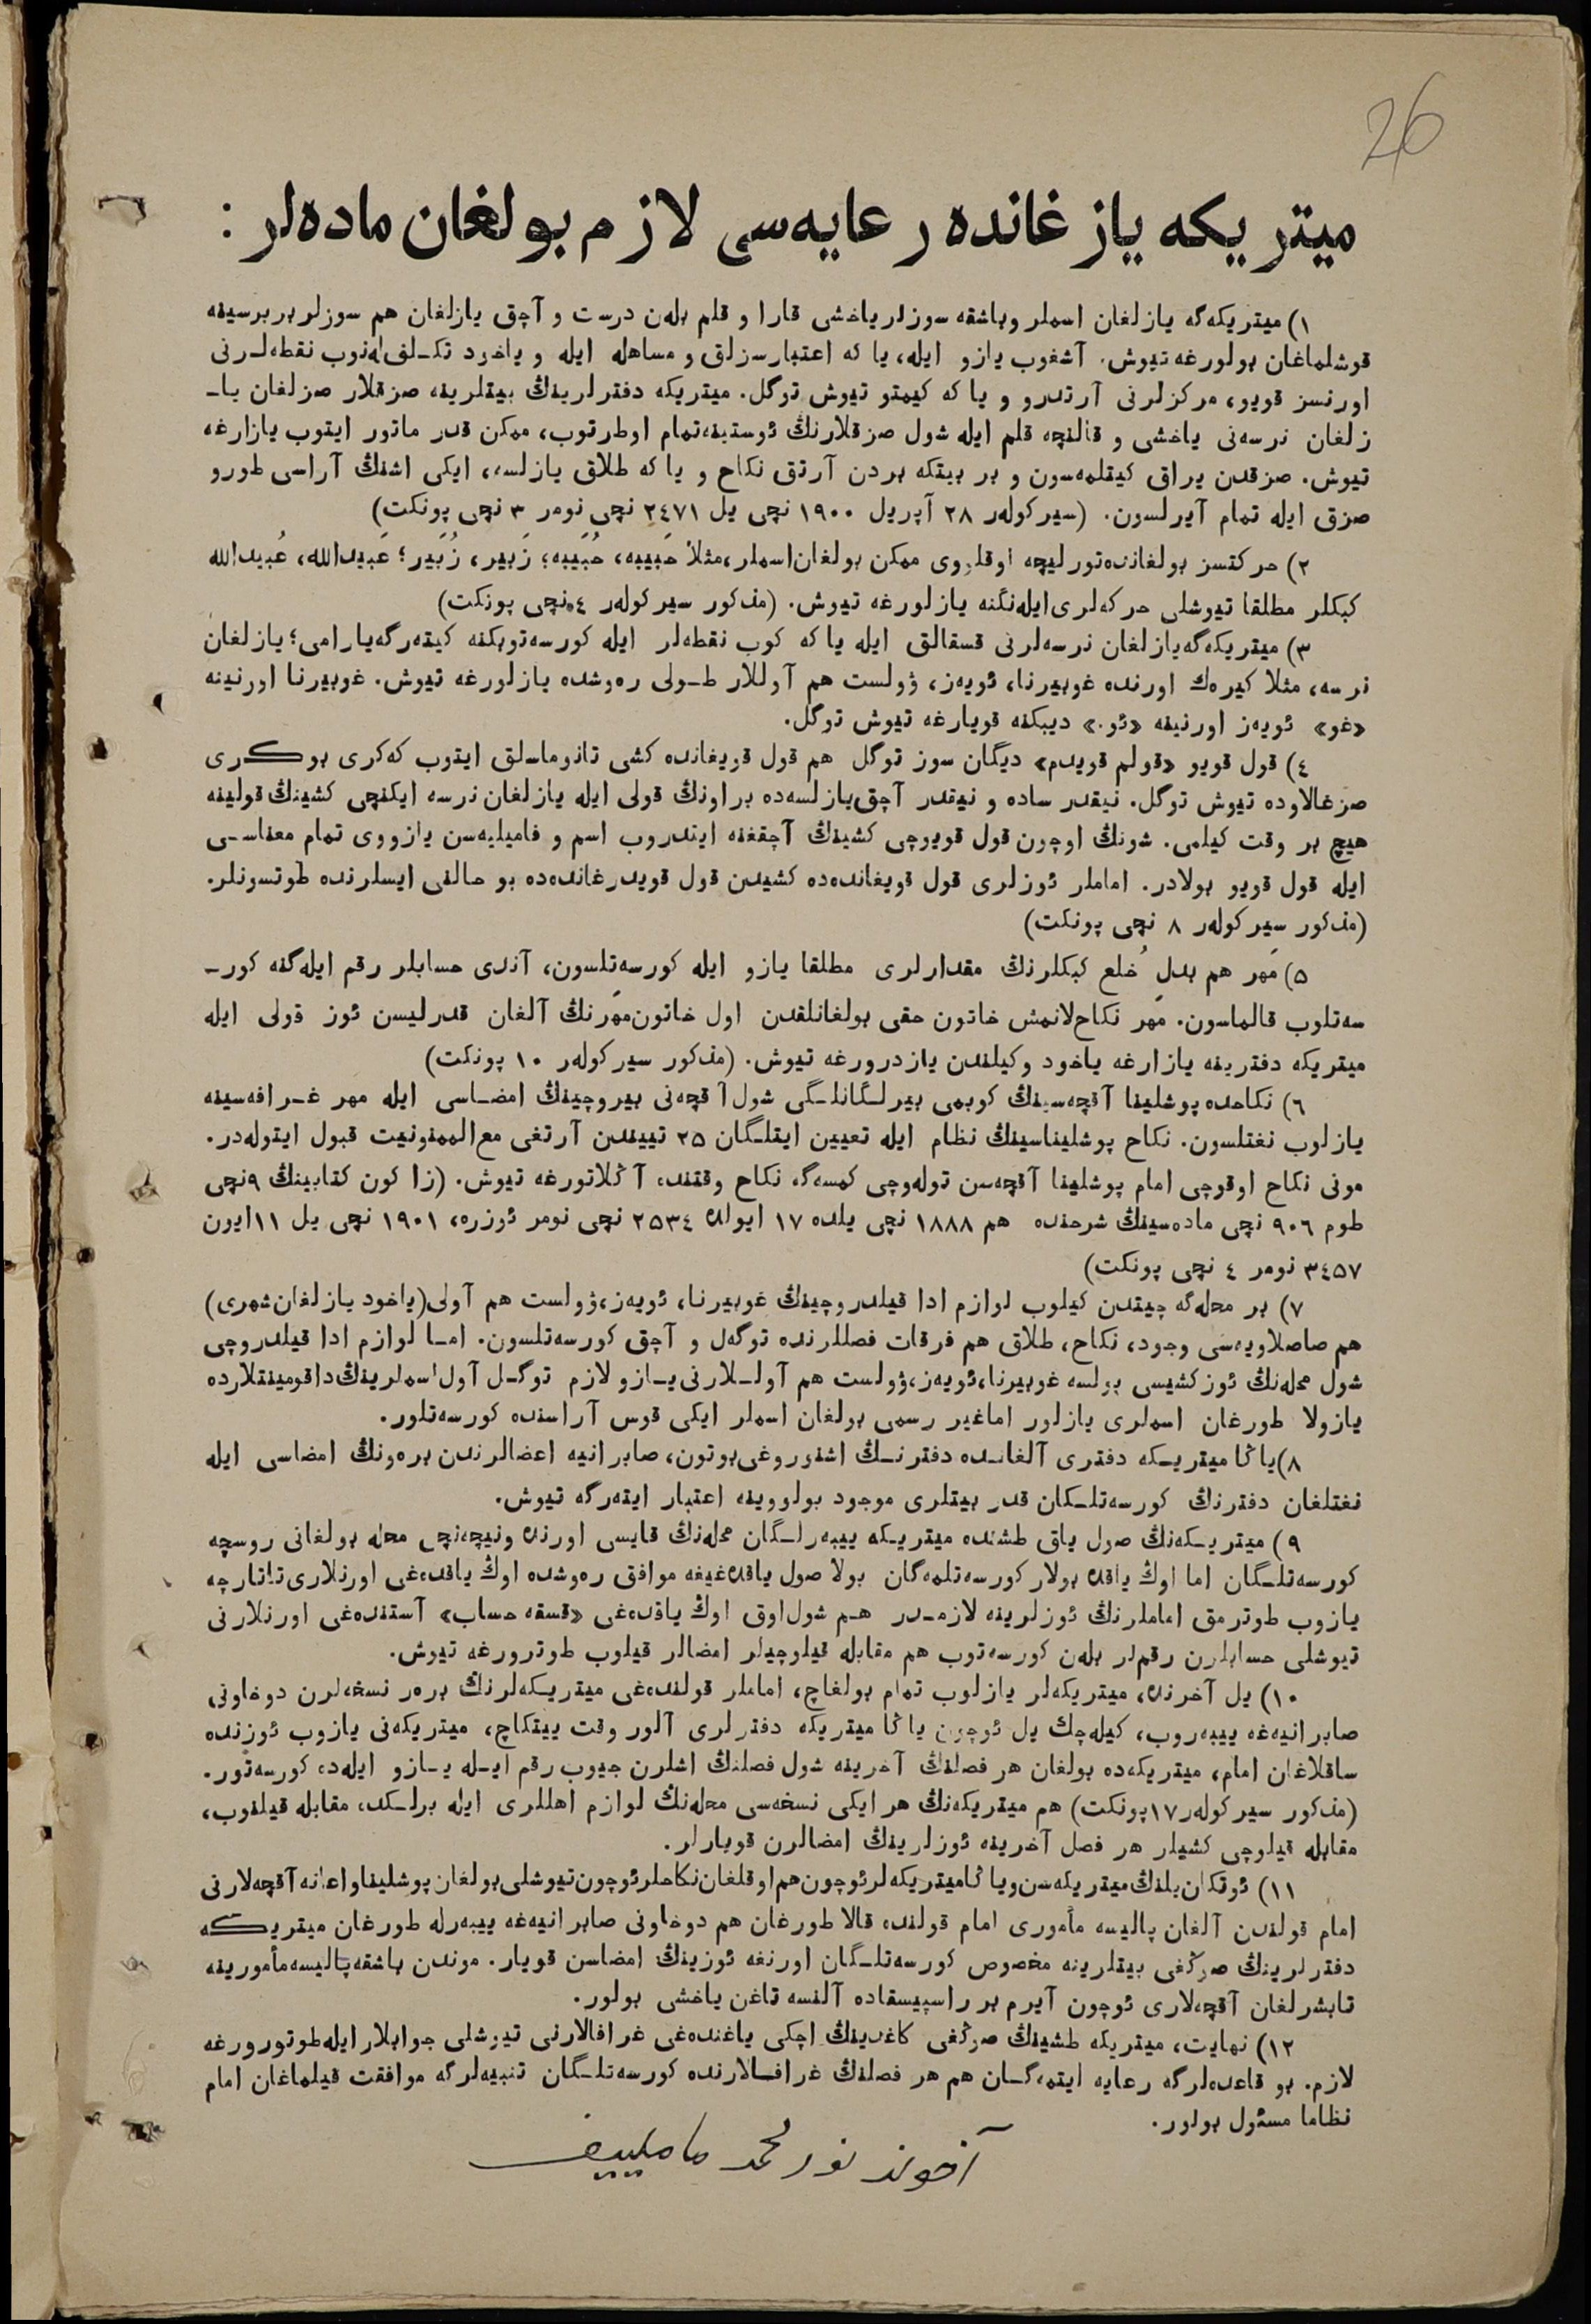 26
میتریکه یازغانده رعایه‌سی لازم بولغان ماده‌لر :
۱) میتریکه‌گه یازلغان اسملر وباشقه سوزلر یاخشی قارا و قلم بلەن درست و آچق یازلغان هم سوزلر بربرسینه
قوشلماغان بولورغه تیوش. آشغوب یازو ایله، یا که اعتبارسزلق و مساهله ایله و یاخود تکـلف‌له‌نوب نقطه‌لـرنی
اورنسز قویو، مرکزلرنی آرتدرو و یا که کیمتو تیوش توگل. میتریکه دفترلرینڭ بیتلرینه صزقلار صزلغان یاـ
زلغان نرسه‌نی یاخشی و قالنچه قلم ایله شول صزقلارنڭ ئوستینه‌تمام اوطرتوب، ممکن قدر ماتور ایتوب یازارغه
تیوش. صزقدن یراق کیتلمه‌سون و بر بیتکه بردن آرتق نکاح و یا که طلاق یازلسه، ایکی اشنڭ آراسی طورو
صزق ایله تمام آیرلسون. (سیرکولەر ۲۸ آپریل ۱۹۰۰ نچی یل ۲٤۷۱ نچی نومر ۳ نچی پونکت)
۲) حرکتسز بولغانده‌تورلیچه اوقلووی ممکن بولغان‌اسملر،مثلا حَبیبه، حُبَیبه؛ زَبیر، زُبَیر؛ عَبیدالله، عُبیدالله
کبکلر مطلقا تیوشلی حرکه‌لری‌ایله‌نگنه یازلورغه تیوش. (مذکور سیرکولەر ٤نچی پونکت)
۳) میتریکه‌گه‌یازلغان نرسه‌لرنی قسقالق ایله یا که کوب نقطه‌لر ایله کورسه‌توبکنه کیته‌رگه‌یارامی؛ یازلغان
نرسه، مثلا کیره‌ك اورنده غوبیرنا، ئویه‌ز، ۋولست هم آوللار طـولی ره‌وشده یازلورغه تیوش. غوبیرنا اورنینه
«غو» ئویه‌ز اورنینه «ئو.» دیبکنه قویارغه تیوش توگل.
٤) قول قویو «قولم قویدم» دیگان سوز توگل هم قول قویغانده کشی تانوماسلق ایتوب که‌کری بوکـری
صزغالاوده تیوش توگل. نیقدر ساده و نیقدر آچق‌یازلسه‌ده براونڭ قولی ایله یازلغان نرسه ایکنچی کشینڭ قولینه
هیچ بر وقت کیلمی. شونڭ اوچون قول قویوچی کشینڭ آچقغنه ایتدروب اسم و فامیلیه‌سن یازووی تمام معناسـی
ایله قول قویو بولادر. اماملر ئوزلری قول قویغانده‌ده کشیدن قول قویدرغانده‌ده بو حالنی ایسلرنده طوتسونلر.
(مذکور سیرکولەر ۸ نچی پونکت)
۵) مَهر هم بدلِ خُلع کبکلرنڭ مقدارلری مطلقا یازو ایله کورسه‌تلسون، آندی حسابلر رقم ایله‌گنه کورـ
سه‌تلوب قالماسون. مَهر نکاح‌لانمش خاتون حقی بولغانلقدن اول خاتون‌مَهرنڭ آلغان قدرلیسن ئوز قولی ایله
میتریکه دفترینه یازارغه یاخود وکیلندن یازدرورغه تیوش. (مذکور سیرکولەر ۱۰ پونکت)
٦) نکاحده پوشلینا آقچه‌سینڭ کوبمی بیرلـگانلـگی شول آقچه‌نی بیروچینڭ امضـاسی ایله مهر غـرافه‌سینه
یازلوب نغتلسون. نکاح پوشلیناسینڭ نظام ایله تعیین ایتلـگان ۲۵ تییندن آرتغی مع‌الممنونیت قبول ایتوله‌در.
مونی نکاح اوقوچی امام پوشلینا آقچه‌سن توله‌وچی کمسه‌گه نکاح وقتنده آڭلاتورغه تیوش. (زا کون کتابینڭ ۹نچی
طوم ۹۰٦ نچی ماده‌سینڭ شرحنده هم ۱۸۸۸ نچی یلده ۱۷ ایولده ۲۵۳٤ نچی نومر ئوزره، ۱۹۰۱ نچی یل ۱۱ایون
۳٤۵۷ نومر ٤ نچی پونکت)
۷) بر محله‌گه چیتدن کیلوب لوازم ادا قیلدروچینڭ غوبیرنا، ئویه‌ز،ۋولست هم آولی(یاخود یازلغان‌شهری)
هم صاصلاویه‌سی وجود، نکاح، طلاق هم فرقات فصللرنده توگه‌ل و آچق کورسه‌تلسون. امـا لوازم ادا قیلدروچی
شول محله‌نڭ ئوزکشیسی بولسه غوبیرنا،ئویه‌ز،ۋولست هم آولـلارنی یـازو لازم توگـل آول‌اسملرینڭ‌داقومینتلارده
یازولا طورغان اسملری یازلور اماغیر رسمی بولغان اسملر ایکی قوس آراسنده کورسه‌تلور.
۸)یاڭا میتریـکه دفتری آلغانـده دفترنـڭ اشنوروغی‌بوتون، صابرانیه اعضالرندن بره‌ونڭ امضاسی ایله
نغتلغان دفترنڭ کورسه‌تلـکان قدر بیتلری موجود بولووینه اعتبار ایته‌رگه تیوش.
۹) میتریـکه‌نڭ صول یاق طشنده میتریـکه ییبه‌رلـگان محله‌نڭ قایسی اورنده ونیچه‌نچی محله بولغانی روسچه
کورسه‌تلـگان اما اوڭ یاقده بولار کورسه‌تلمه‌گان بولا صول یاقده‌غیغه موافق ره‌وشده اوڭ یاقده‌غی اورنلاری‌تاتارچه
یازوب طوترمق اماملرنڭ ئوزلرینه لازمـدر هـم شول‌اوق اوڭ یاقده‌غی «قسقه حساب» آستنده‌غی اورنلارنی
تیوشلی حسابلرن رقم‌لر بلەن کورسه‌توب هم مقابله قیلوچیلر امضالر قیلوب طوترورغه تیوش.
۱۰) یل آخرنده، میتریکه‌لر یازلوب تمام بولغاچ، اماملر قولنده‌غی میتریـکه‌لرنڭ بره‌ر نسخه‌لرن دوخاونی
صابرانیه‌غه ییبه‌روب، کیله‌چك یل ئوچون یاڭا میتریکه دفترلری آلور وقت ییتکاچ، میتریکه‌نی یازوب ئوزنده
ساقلاغان امام، میتریکه‌ده بولغان هر فصلنڭ آخرینه شول فصلنڭ اشلرن جیوب رقم ایـله یـازو ایله‌ده کورسه‌تور.
(مذکور سیرکولەر۱۷پونکت) هم میتریکه‌نڭ هر ایکی نسخه‌سی محله‌نڭ لوازم اهللری ایله برلـکده مقابله قیلنوب،
مقابله قیلوچی کشیلر هر فصل آخرینه ئوزلرینڭ امضالرن قویارلر.
۱۱) ئوتکان‌یلنڭ‌میتریکه‌سن‌ویاڭامیتریکه‌لرئوچون‌هم‌اوقلغان‌نکاحلرئوچون‌تیوشلی‌بولغان‌پوشلیناواعانه‌آقچه‌لارنی
امام قولندن آلغان پالیسه مأموری امام قولنده قالا طورغان هم دوخاونی صابرانیه‌غه ییبه‌رله طورغان میتریـکه
دفترلرینڭ صوڭغی بیتلرینه مخصوص کورسه‌تلـگان اورنغه ئوزینڭ امضاسن قویار. موندن باشقه‌پالیسه‌مأمورینه
تابشرلغان آقچه‌لاری ئوچون آیرم بر راسپیسقاده آلنسه تاغن یاخشی بولور.
۱۲) نهایت، میتریکه طشینڭ صوڭغی کاغدینڭ اچکی یاغنده‌غی غرافالارنی تیوشلی جوابلار ایله‌طوتورورغه
لازم. بو قاعده‌لرگه رعایه ایتمه‌گـان هم هر فصلنڭ غرافـالارنده کورسه‌تلـگان تنبیه‌لرگه موافقت قیلماغان امام
نظاما مسئول بولور.
آخوند نورمحمد ماملییف